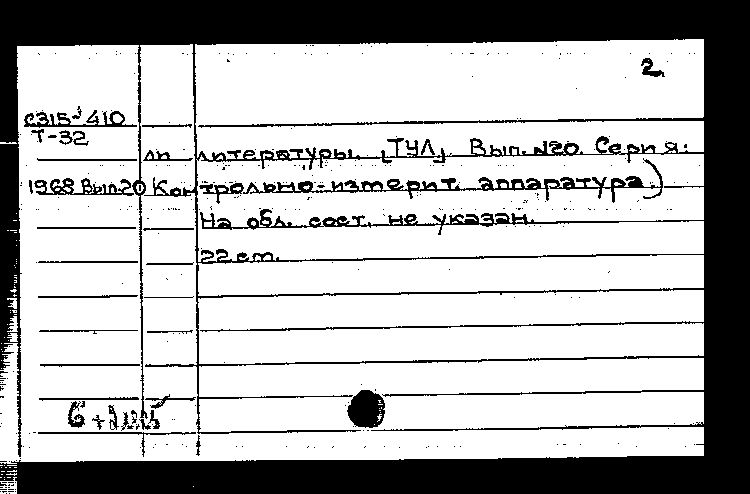 2.
С315-410
Т-32
ли литературы. [ТУЛ] Вып. №20. Серия:
1968 Вып.20 Контрольно-измерит. аппаратура.)
На обл. сост. не указан.
22 cm.